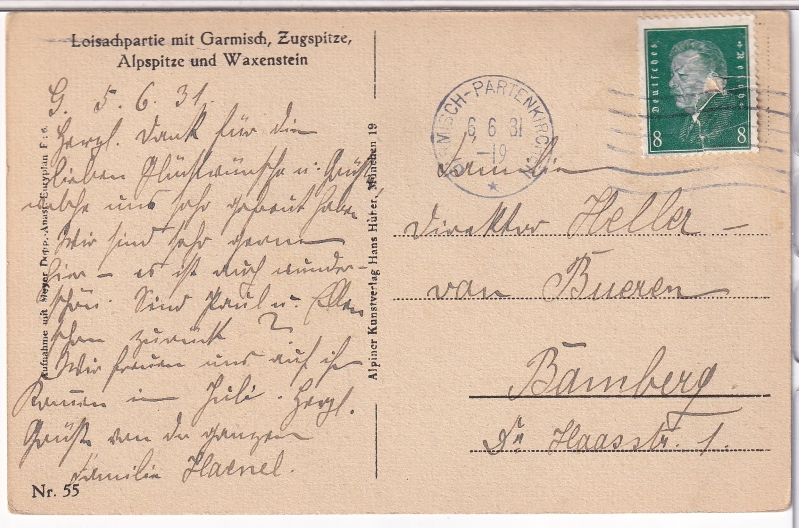 Loisachpartie mit Garmisch, Zugspitze,
Alpspitze und Waxenstein
G. 5. 6. 31.
Herzl. Dank für die
lieben Glückwünsche u. Grüße
welche uns sehr gefreut haben
Wir sind sehr gerne
hier – es ist auch wunder-
schön. Sind Paul u. Ellen
schon zurück?
Wir freuen uns auf ihr
Kommen im Juli. Herzl.
Grüße von der ganzen
Familie Haenel.
Nr. 55
Aufnahme mit Meyer Dopp.-Anast. Euryplan F:6.
Alpiner Kunstverlag Hans Huber, München 19
GARMISCH-PARTENKIRCHEN
6 6 31
-19
Deutsches Reich
8 8
Familie
Direktor Heller –
van Bueren
Bamberg.
Dr Haasstr. 1.